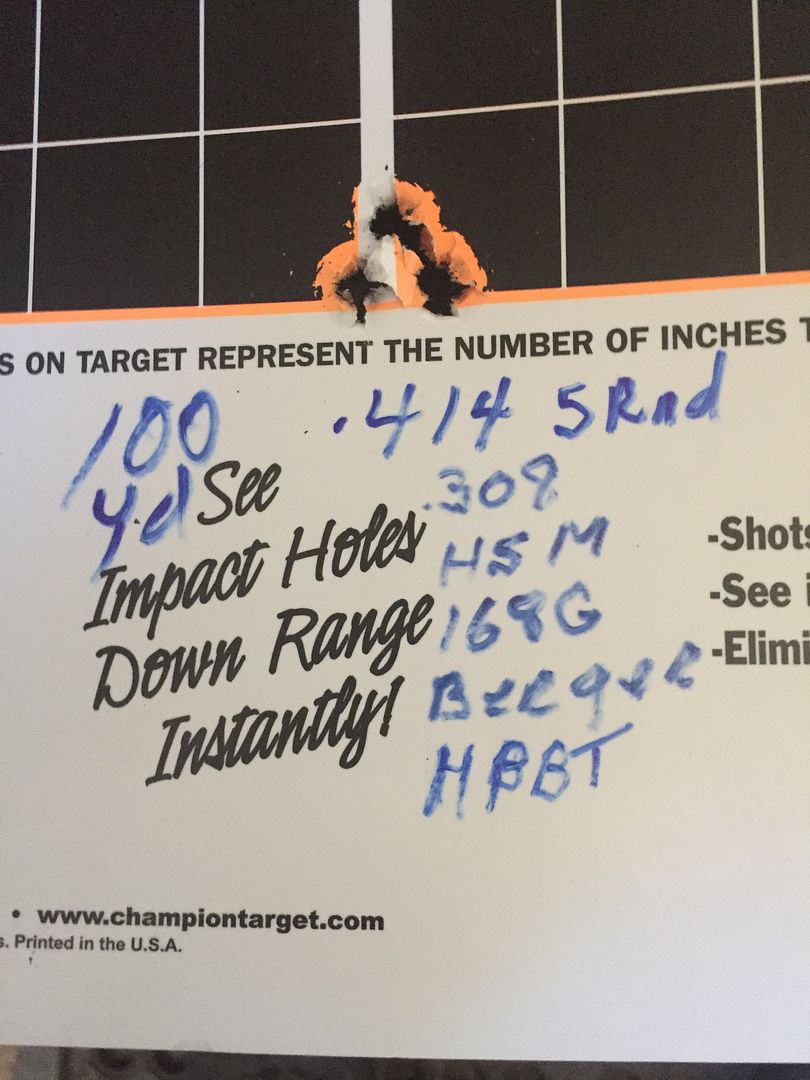 S ON TARGET REPRESENT THE NUMBER OF INCHES T
100 .414 5 Rnd
yd See .308
Impact Holes HSM
Down Range 168G
Instantly! Berger
HPBT
-Shots
-See i
-Elimi
• www.championtarget.com
s. Printed in the U.S.A.